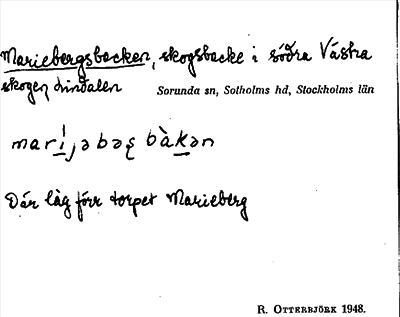 Mariebergsbacken, skogsbacke i södra Västra
skogen, Lindalen
Sorunda sn, Sotholms hd, Stockholms län
marí̱jəbəʂ bàḵən
Där låg förr torpet Marieberg
R. OTTERBJÖRK 1948.